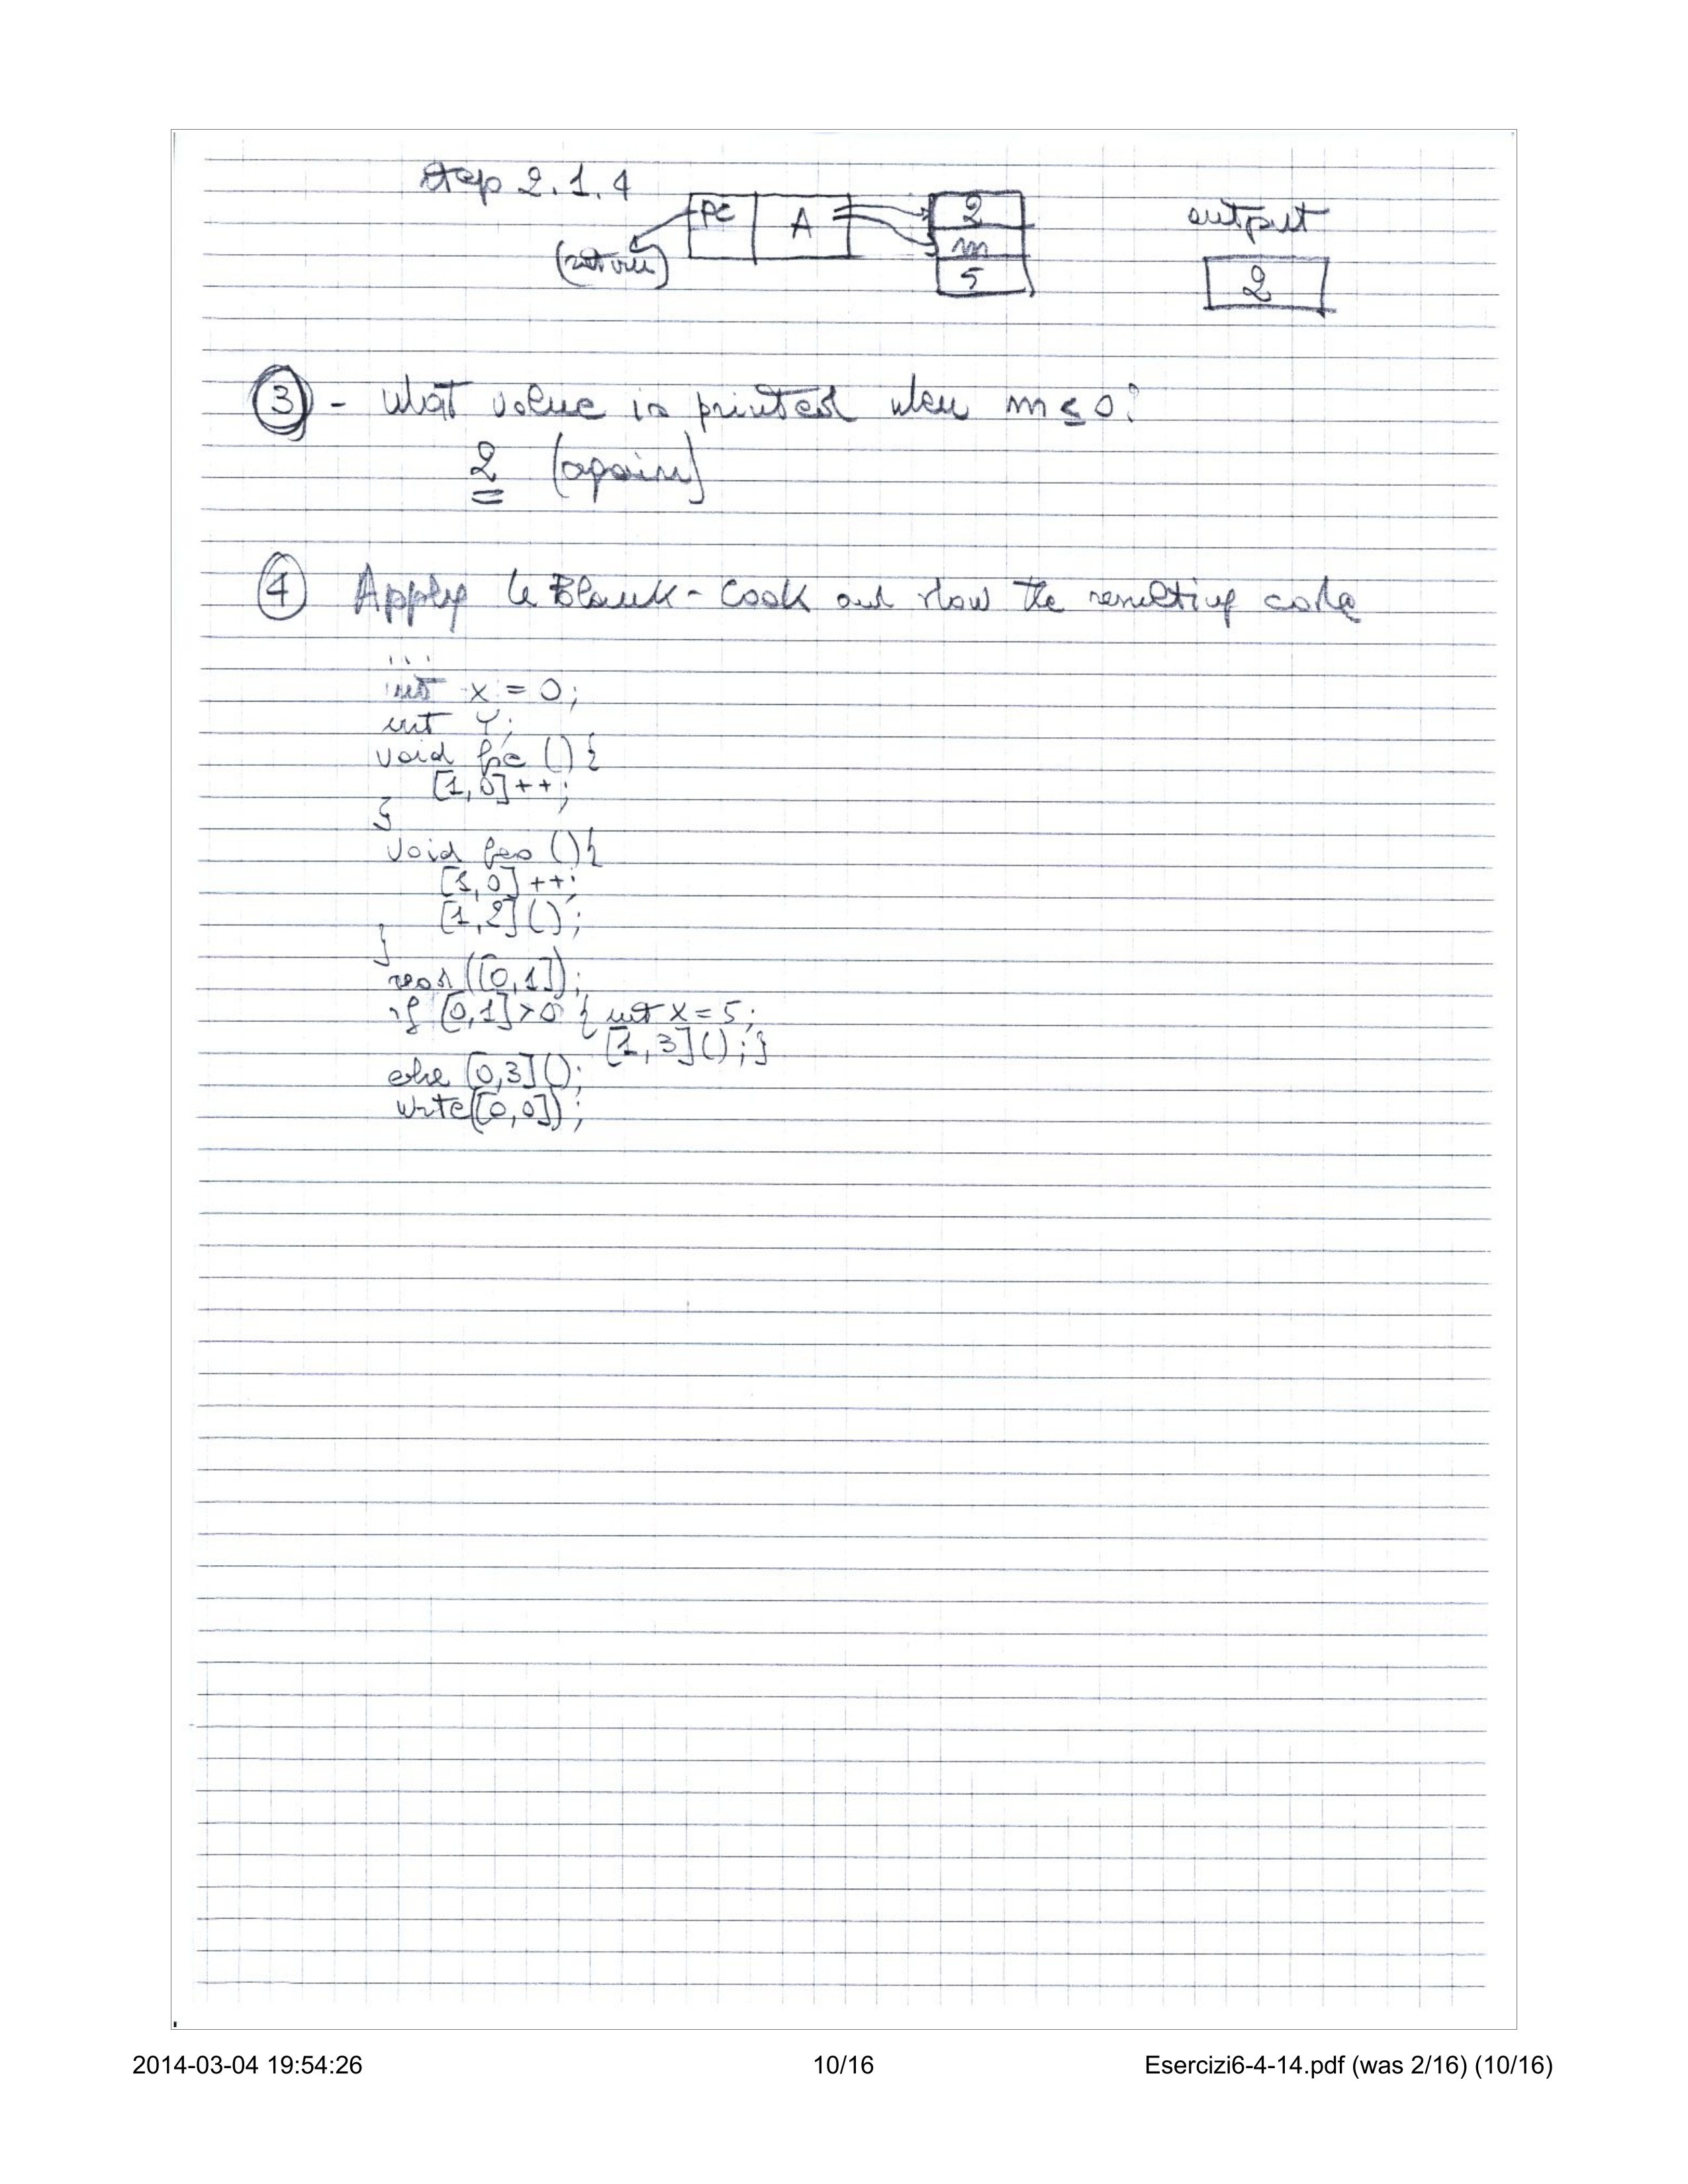 step 2.1.4
PC A 2 output
(return) m
5 2
③ - What value is printed when m ≤ 0?
2 (again)
④ Apply LeBlank-Cook and show the resulting code
...
int x = 0;
int Y;
void fie () {
[1,0]++;
}
void foo () {
[1,0]++;
[1,2]();
}
read([0,1]);
if [0,1]>0 { int x = 5;
[1,3](); }
else [0,3]();
write([0,0]);
2014-03-04 19:54:26 10/16 Esercizi6-4-14.pdf (was 2/16) (10/16)